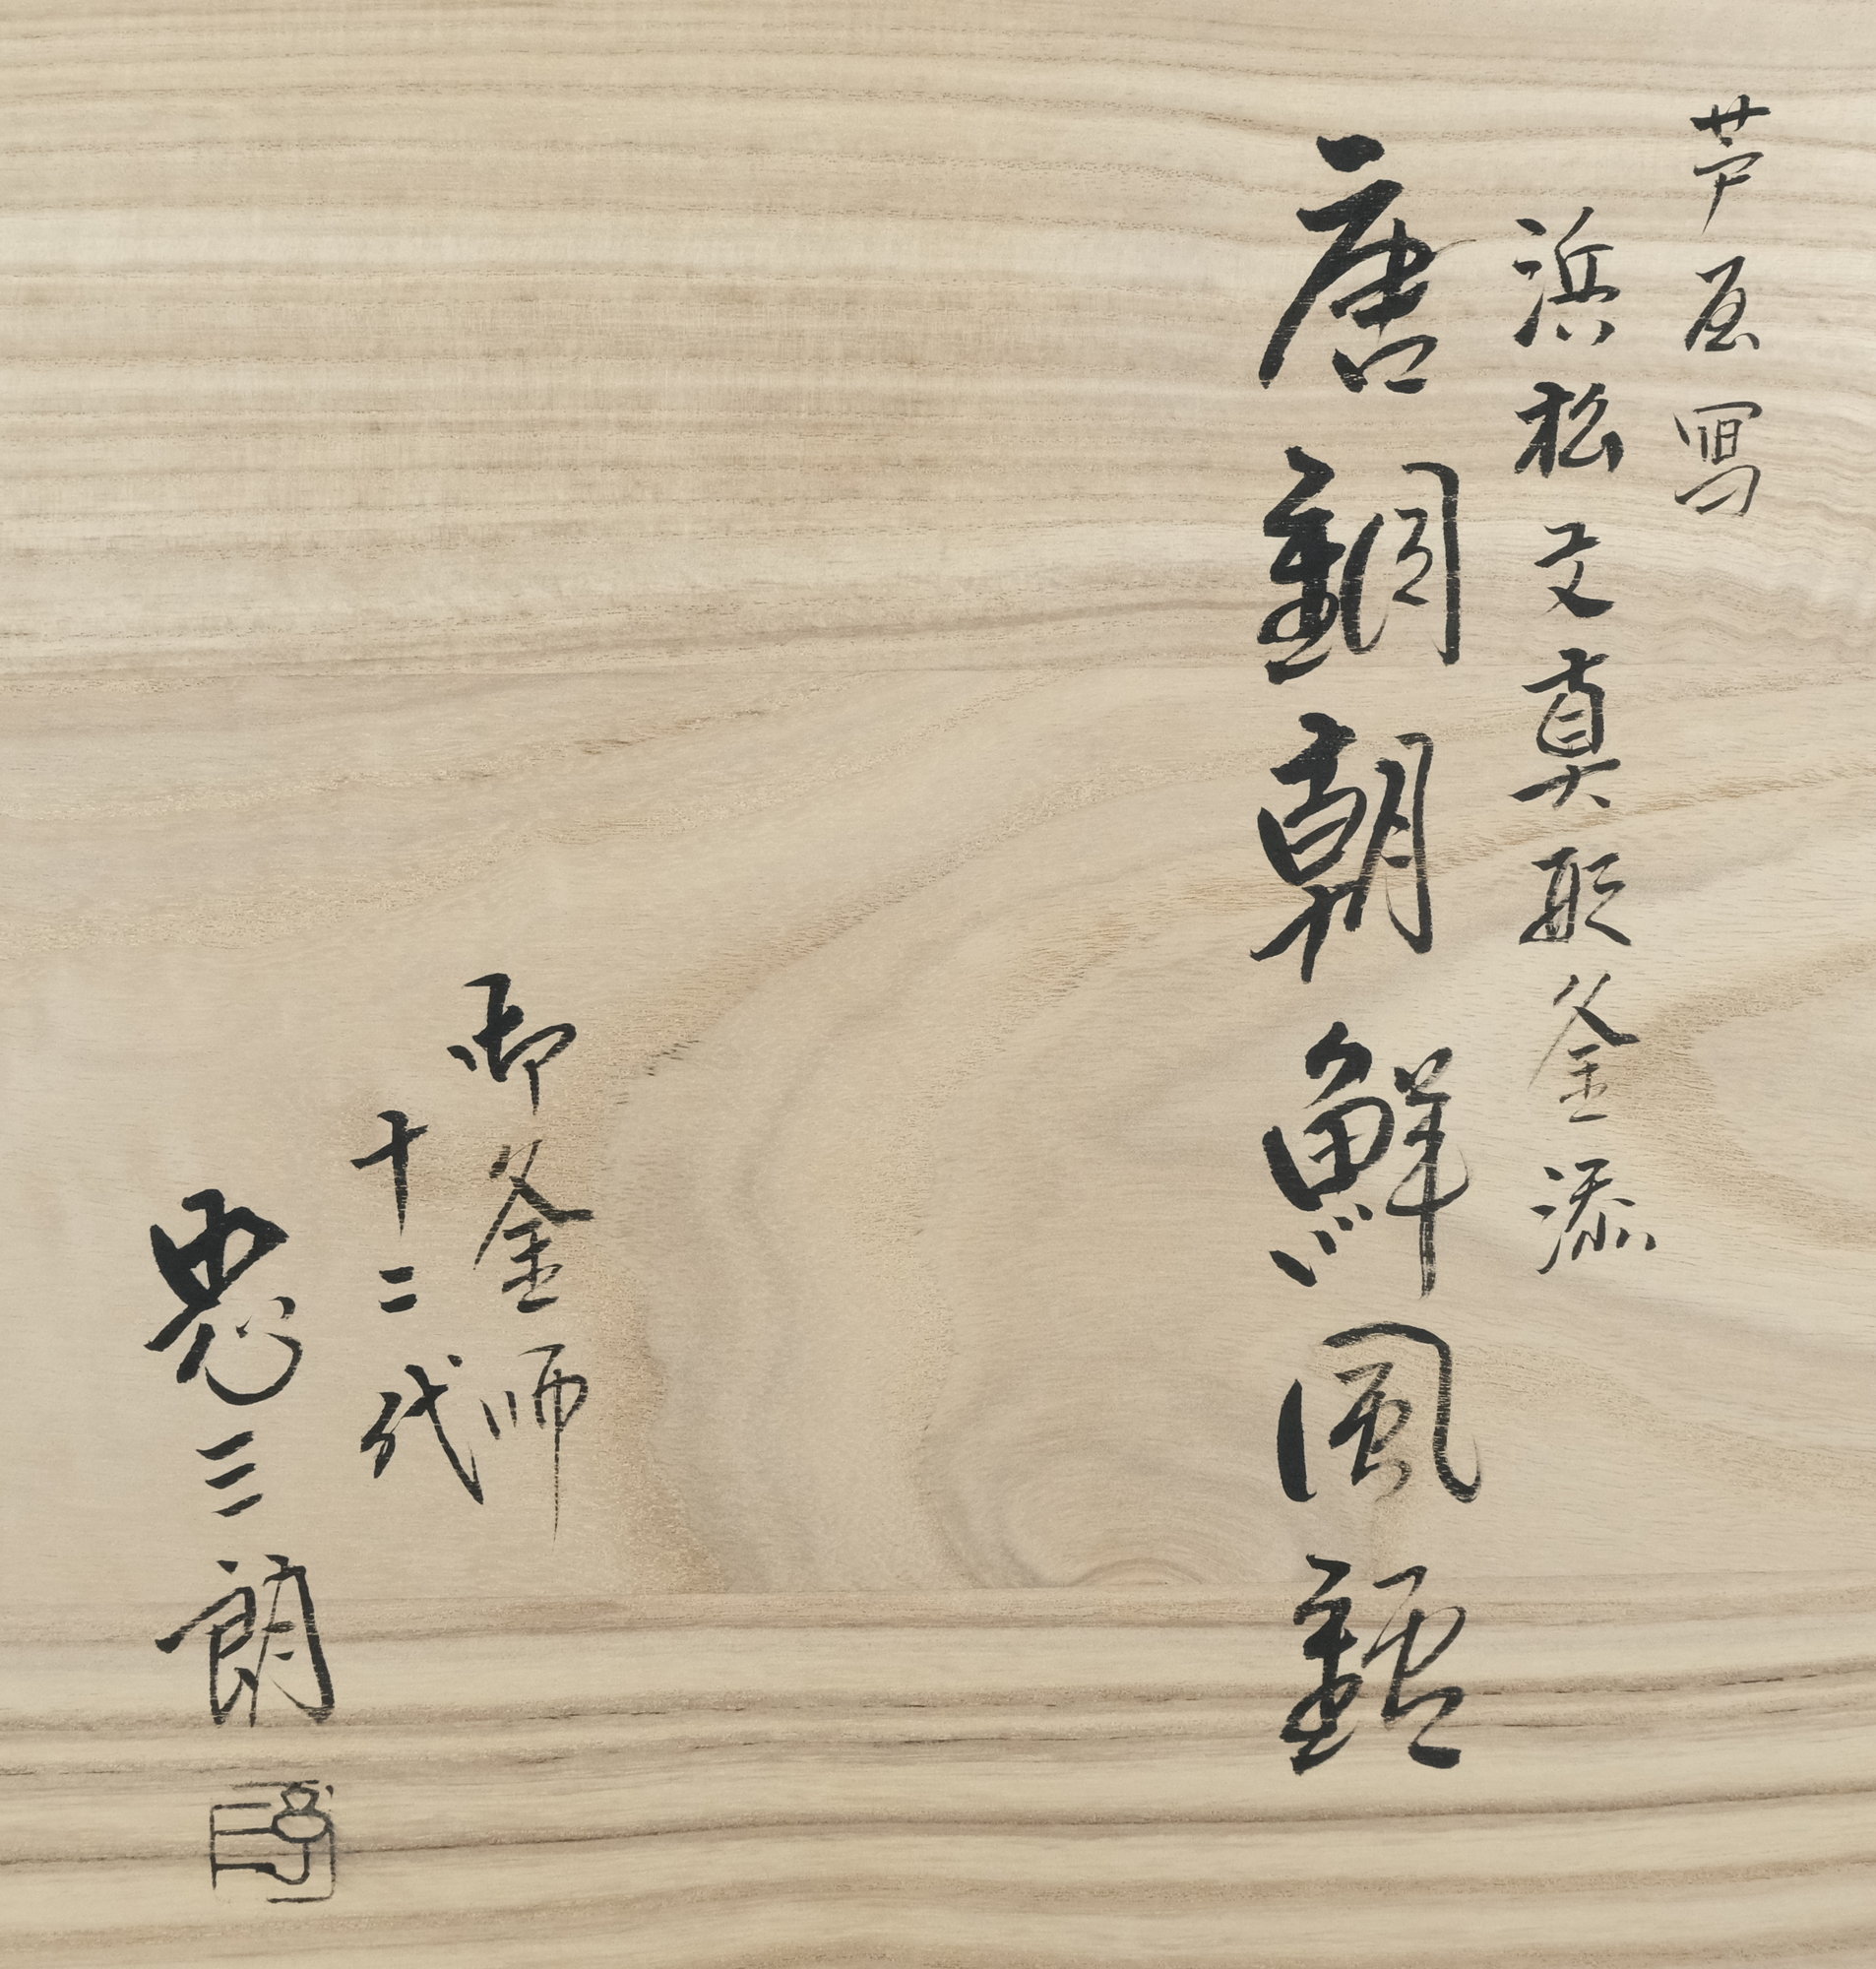 芦屋冩
浜松文真形釜添
唐銅朝鮮風鑪
御釜師
十二代
忠三朗